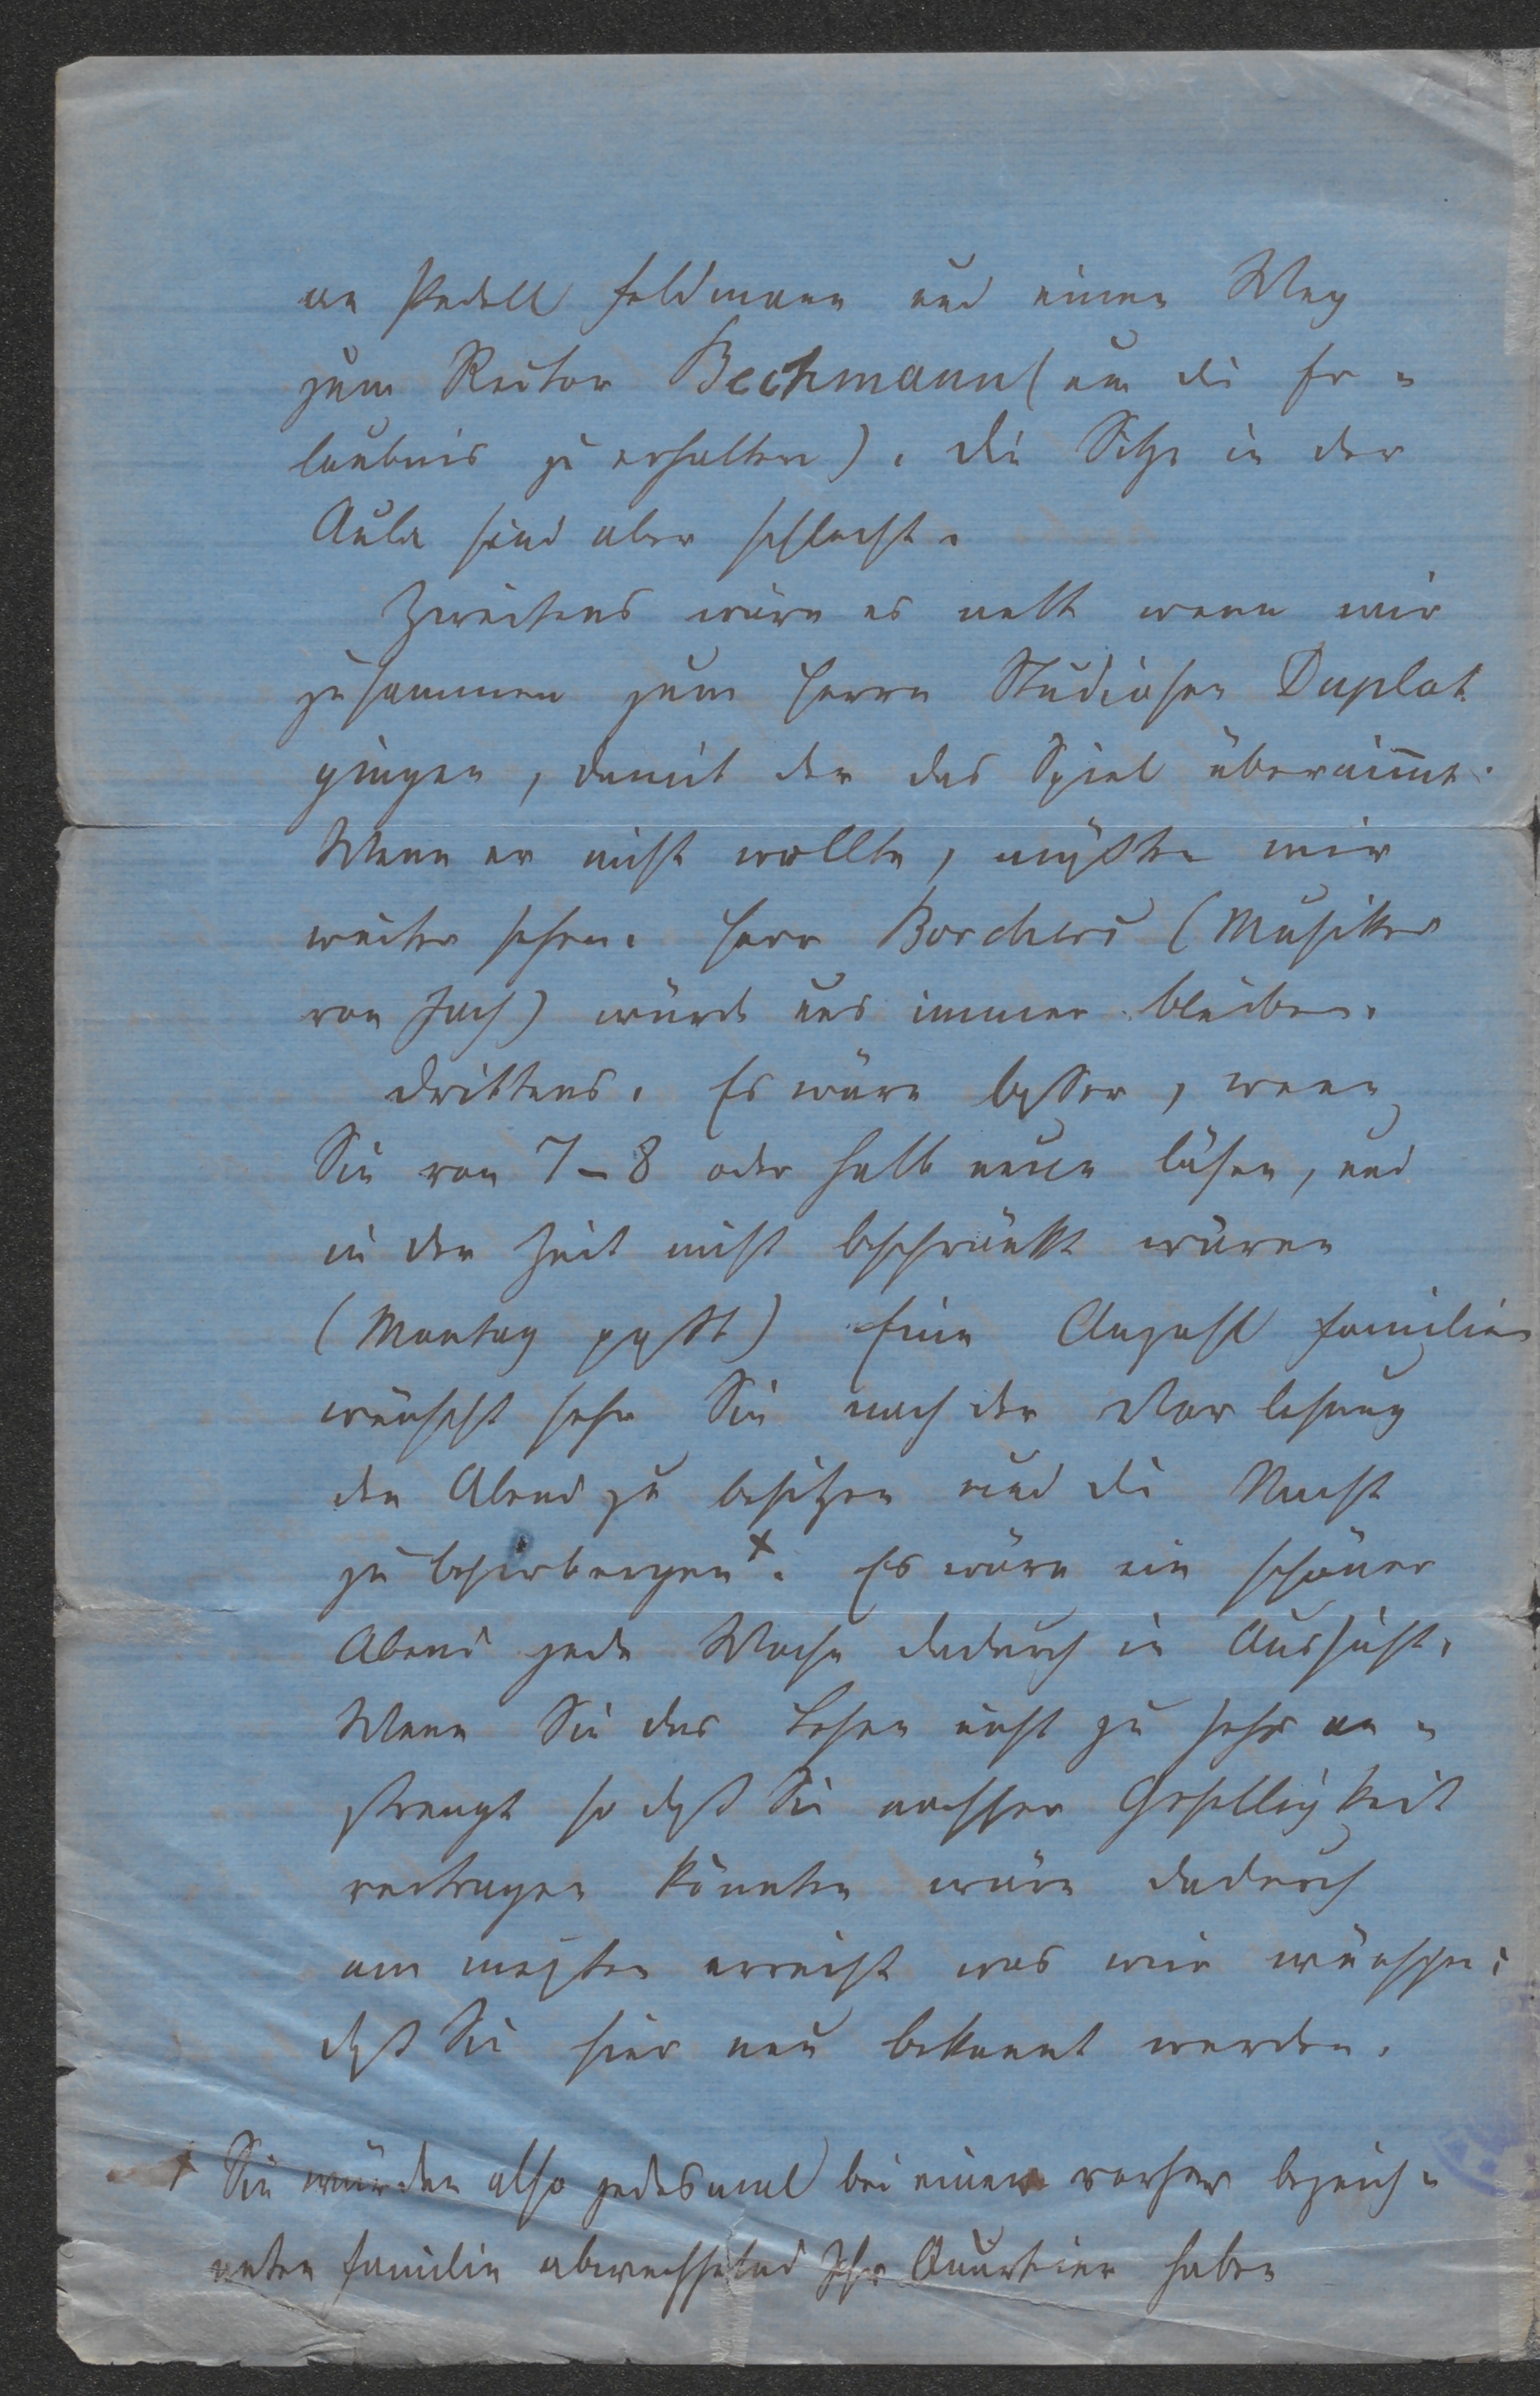 an Pedell Feldmann und einen Weg
zum Rector Bechmann (um die Er-
laubnis zu erhalten). Die Sitze in der
Aula sind aber schlecht.
Zweitens wäre es nett wenn wir
zusammen zum Herrn Studiosen Duplat
gingen, damit der das Spiel übernim̅t.
Wenn er nicht wollte, müßten wir
weiter sehen. Herr Borchers (Musiker
von Fach) würde uns immer bleiben.
Drittens. Es wäre besser, wenn
Sie von 7-8 oder halb neun läsen, und
in der Zeit nicht beschränkt wären
(Montag paßt) Eine Anzahl Familien
wünscht sehr Sie nach der Vorlesung
den Abend zu besitzen und die Nacht
zu beherbergen x. Es wäre ein schöner
Abend jede Woche dadurch in Aussicht.
Wenn Sie das Lesen nicht zu sehr an-
strengt so daß Sie nachher Geselligkeit
vertragen könnten wäre dadurch
am meisten erreicht was wir wünschen:
daß Sie hier neu bekannt werden.
x Sie würden also jedesmal bei einer vorher bezeich-
neten Familie abwechselnd Ihr Quartier haben